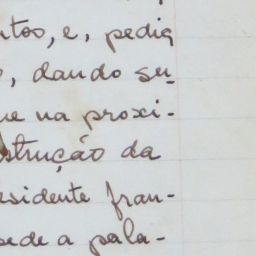 ntos, e, pediq
, dando su-
ue na proxi-
strução da
esidente fran-
pede a pala-